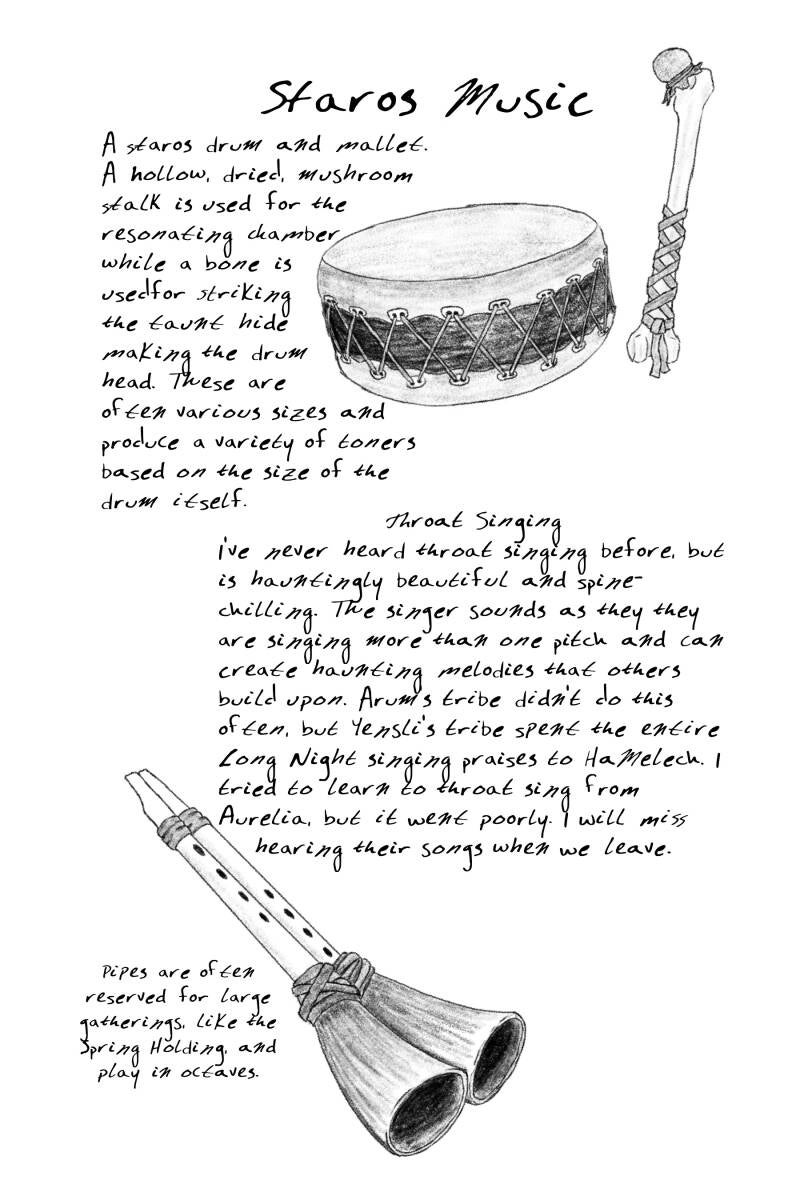 Staros Music
A staros drum and mallet.
A hollow, dried, mushroom
stalk is used for the
resonating chamber
while a bone is
usedfor striking
the taunt hide
making the drum
head. These are
often various sizes and
produce a variety of toners
based on the size of the
drum itself.
Throat Singing
I've never heard throat singing before, but
is hauntingly beautiful and spine-
chilling. The singer sounds as they they
are singing more than one pitch and can
create haunting melodies that others
build upon. Arum's tribe didn't do this
often, but Yensli's tribe spent the entire
Long Night singing praises to HaMelech. I
tried to learn to throat sing from
Aurelia, but it went poorly. I will miss
hearing their songs when we leave.
Pipes are often
reserved for large
gatherings, like the
Spring Holding, and
play in octaves.